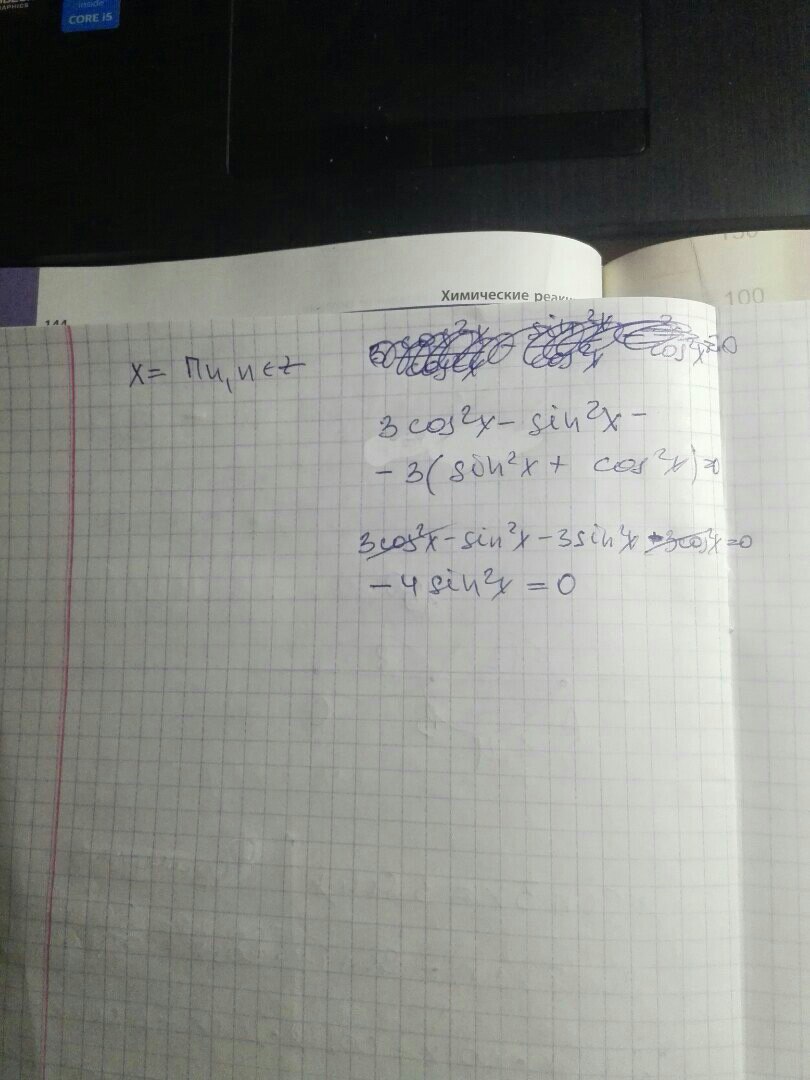 inside
CORE i5
Химические реак
144
100
x = πn, n ∈ Z
3cos²x - sin²x -
- 3(sin²x + cos²x) =0
3cos²x - sin²x - 3sin²x - 3cos²x = 0
- 4 sin²x = 0